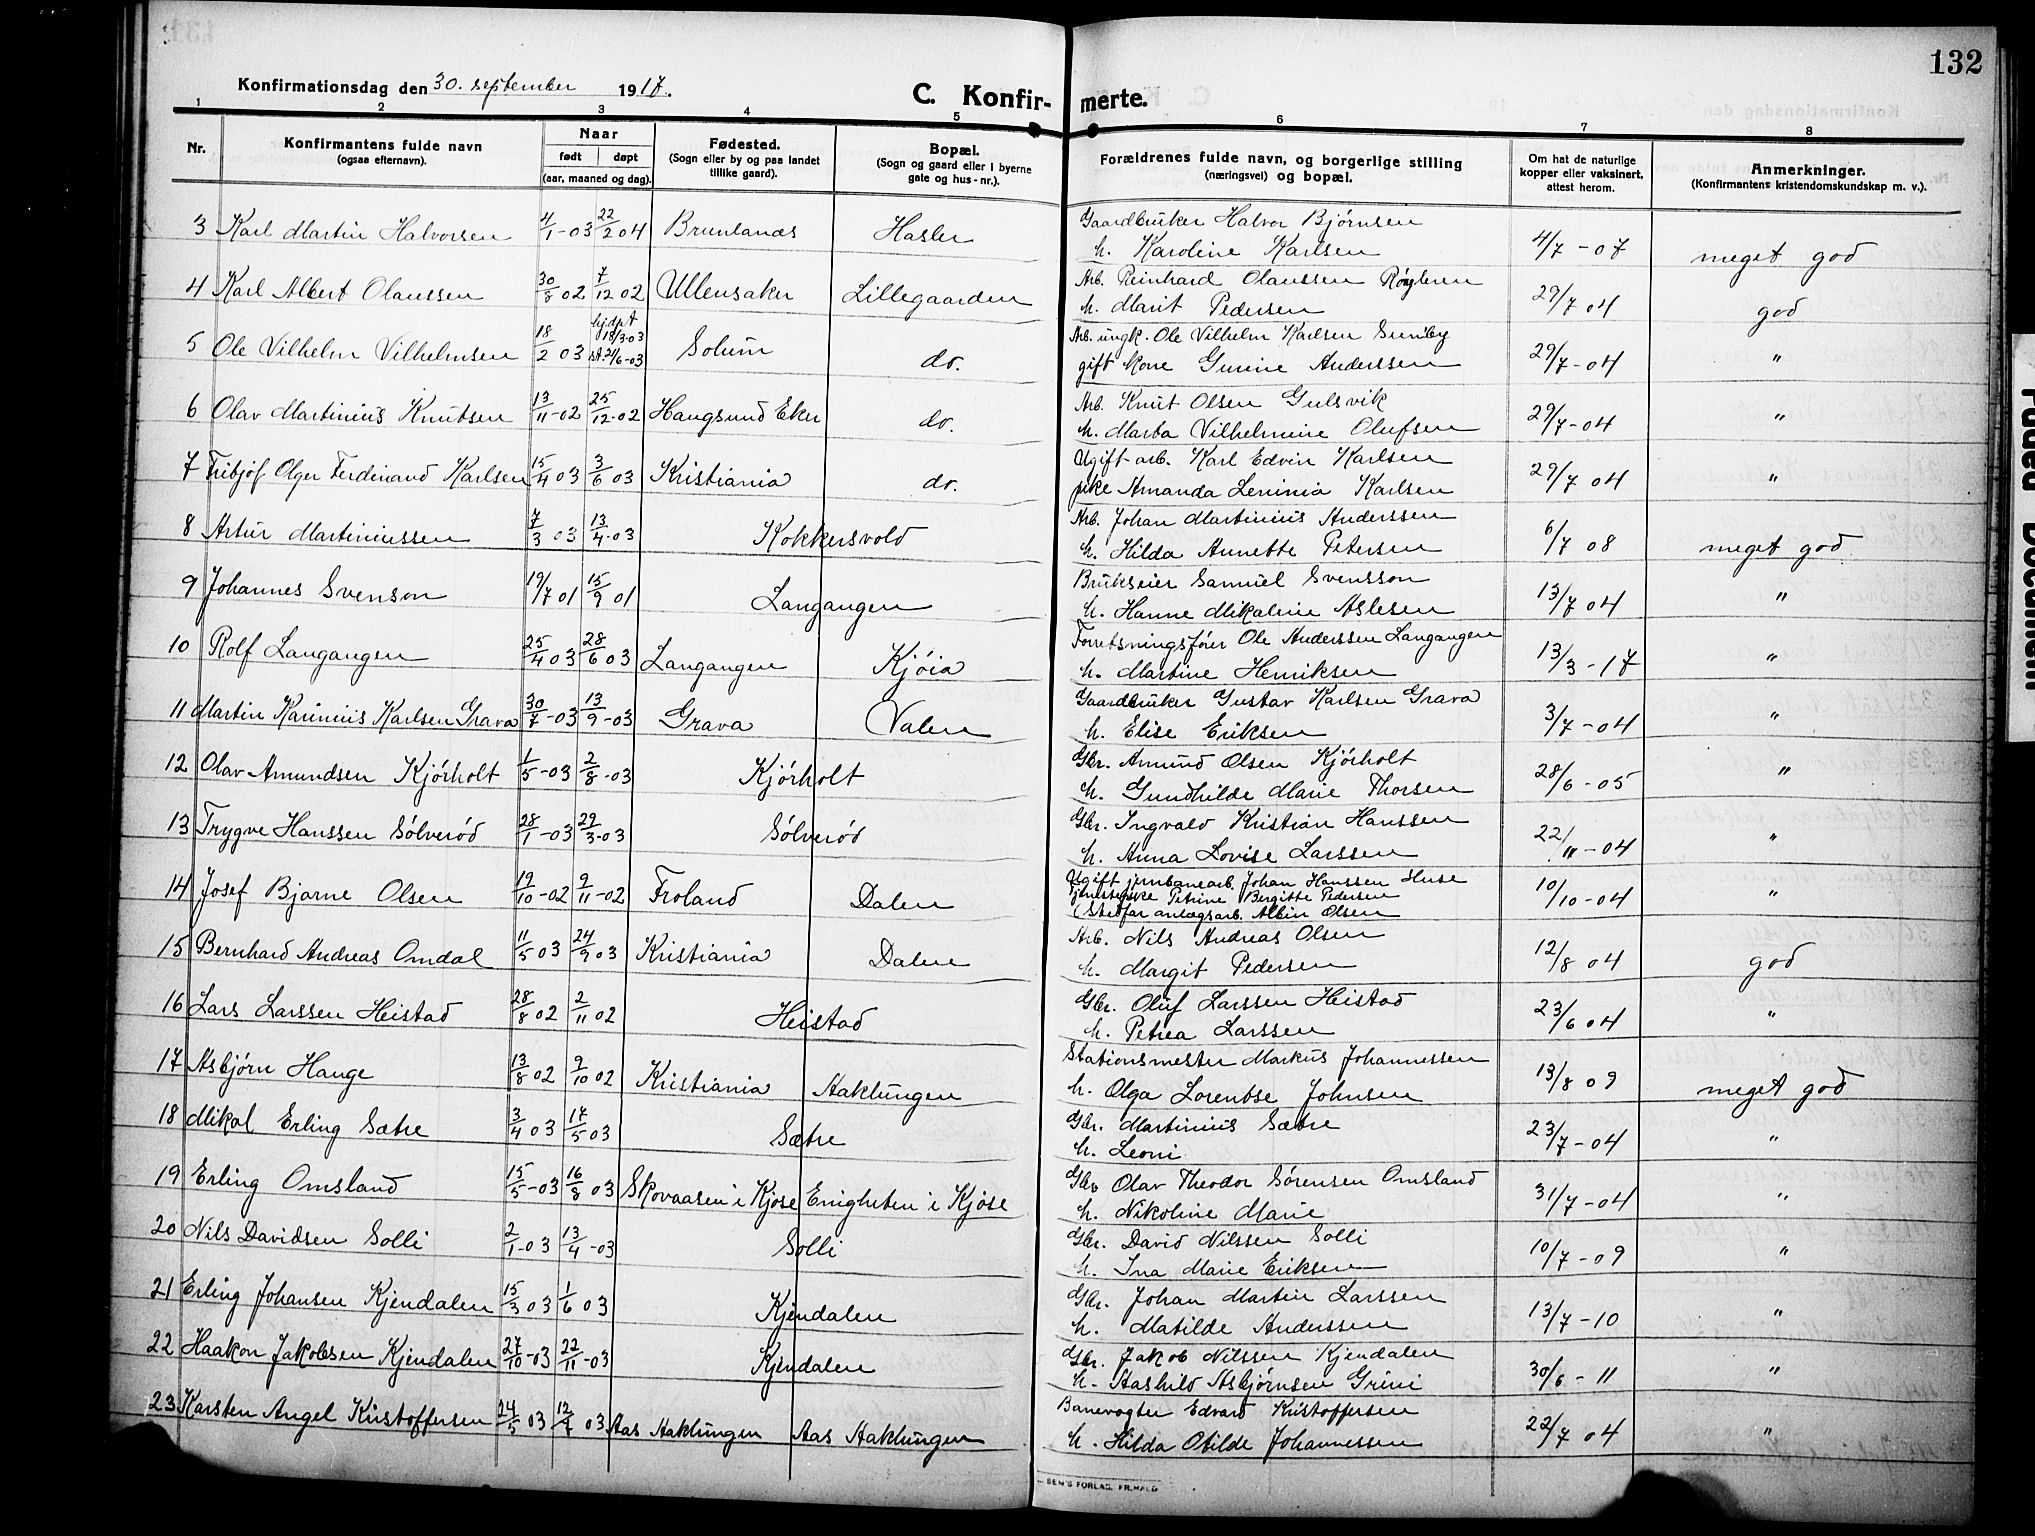 132
Konfirmationsdag den 30. september 1917.
C. Konfirmerte.
1 2 3 4 5 6 7 8
Nr. Konfirmantens fulde navn (ogsaa efternavn). Naar født døpt (aar, maaned og dag). Fødested. (Sogn eller by og paa landet tillike gaard). Bopæl. (Sogn og gaard eller i byerne gate og hus-nr.). Forældrenes fulde navn, og borgerlige stilling (næringsvei) og bopæl. Om hat de naturlige kopper eller vaksinert, attest herom. Anmerkninger. (Konfirmantens kristendomskundskap m. v.).
3 Karl Martin Halvorsen 4/1-03 22/2 04 Brunlanes Hasler Gaardbruker Halvor Bjørnsen
h. Karoline Karlsen 4/7-07 meget god
4 Karl Albert Olaussen 30/8 02 7/12 02 Ullensaker Lillegaarden Arb. Reinhard Olaussen
h. Marit Pedersen 29/7 04 god
5 Ole Vilhelm Vilhelmsen 18/2 03 hj.døpt 18/3-03 st. 21/6-03 Solum do. Arb. ungk. Ole Vilhelm Karlsen Sundby
gift kone Gunine Anderssen 29/7-04 "
6 Olav Martinius Knutsen 13/11-02 25/12-02 Haugsund Eker do. Arb. Knut Olsen Gulsvik
h. Marta Vilhelmine Olufsen 29/7-04 "
7 Fritjof Olger Ferdinand Karlsen 15/4 03 3/6 03 Kristiania do. Ugift arb. Karl Edvin Karlsen
pike Amanda Leninia Karlsen 29/7 04 "
8 Artur Martiniussen 7/3 03 13/4-03 Kokkersvold Arb. Johan Martinius Anderssen
h. Hilda Annette Petersen 6/7 08 meget god
9 Johannes Svenson 19/7 01 15/9 01 Langangen Brukseier Samuel Svensson
h. Hanne Mikaline Aslesen 13/7 04 "
10 Rolf Langangen 25/4 03 28/6 03 Langangen Kjöia Forretningsfører Ole Anderssen Langangen
h. Martine Henriksen 13/3-17 "
11 Martin Karinius Karlsen Grava 30/7-03 13/9-03 Grava Valen Gaardbruker Gustav Karlsen Grava
h. Elise Eriksen 3/7-04 "
12 Olav Amundsen Kjörholt 1/5-03 2/8-03 Kjörholt Gbr. Amund Olsen Kjörholt
h. Gundhilde Marie Thorsen 28/6-05 "
13 Trygve Hanssen Sölveröd 28/1-03 29/3-03 Sölveröd Gbr. Ingvald Kristian Hanssen
h. Anna Lovise Larssen 22/11-04 "
14 Josef Bjarne Olsen 19/10-02 9/11-02 Froland Dalen Ugift jernbanearb. Johan Hanssen Huse
tjenestepike Petrine Bergitte Pedersen
(Stedfar anlægsarb. Albin Olsen 10/10-04 "
15 Bernhard Andreas Omdal 11/5 03 24/9 03 Kristiania Dalen Arb. Nils Andreas Olsen
h. Margit Pedersen 12/8 04 god
16 Lars Larssen Heistad 28/8 02 2/11 02 Heistad Gbr. Oluf Larssen Heistad
h. Petrea Larssen 23/6 04 "
17 Asbjørn Hauge 13/8 02 9/10 02 Kristiania Aaklungen Stationsmester Markus Johannessen
h. Olga Lorentse Johnsen 13/8 09 meget god
18 Mikal Erling Sætre 3/4 03 17/5 03 Sætre Gbr. Martinius Sætre
h. Leoni 23/7-04 "
19 Erling Omsland 15/5-03 16/8 03 Skovaasen i Kjose Enigheten i Kjøse Gbr Olav Theodor Sørensen Omsland
h. Nikoline Marie 31/7-04 "
20 Nils Davidsen Solli 2/1-03 13/4-03 Solli Gbr. David Nilssen Solli
h. Ina Marie Eriksen 10/7-09 "
21 Erling Johansen Kjendalen 15/3 03 1/6 03 Kjendalen Gbr. Johan Martin Larssen
h. Matilde Anderssen 13/7-10 "
22 Haakon Jakobsen Kjendalen 27/10-03 22/11-03 Kjendalen Gbr. Jakob Nilssen Kjendalen
h. Aashild Asbjørnsen Grini 30/6-11 "
23 Karsten Angel Kristoffersen 24/5 03 12/7 03 Aas Aaklungen Aas Aaklungen Banevogter Edvard Kristoffersen
h. Hilda Otilde Johannessen 22/7 04 "
SEM'S FORLAG, FR.HALD